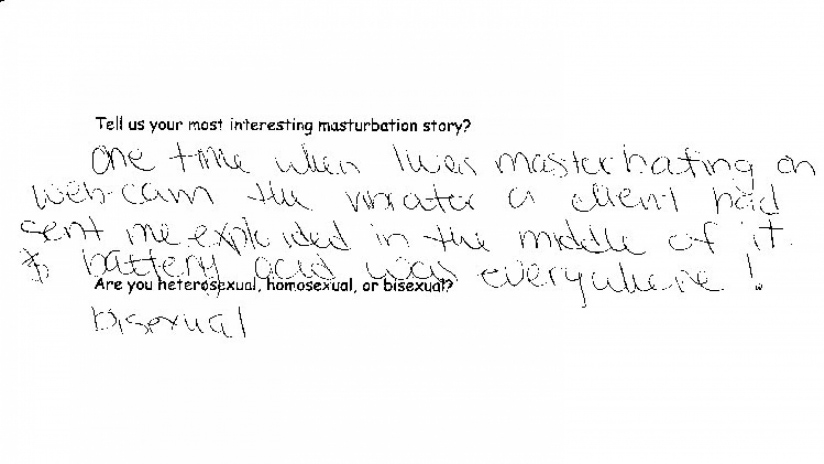 Tell us your most interesting masturbation story?
One time when I was masterbating on
web-cam the vibrater a client had
sent me exploded in the middle of it.
& battery acid was everywhere!
Are you heterosexual, homosexual, or bisexual?
bisexual